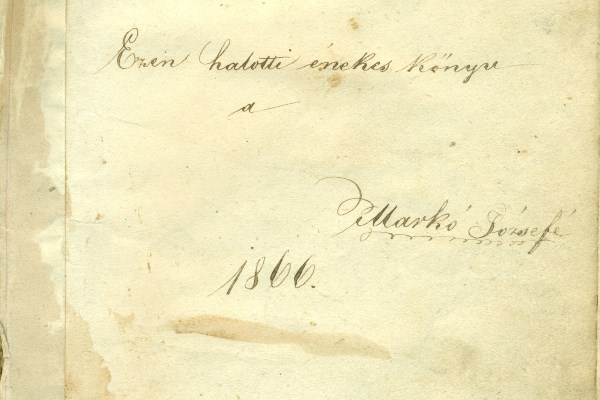 Ezen halotti énekes könyve
a
Markó Józsefé
1866.